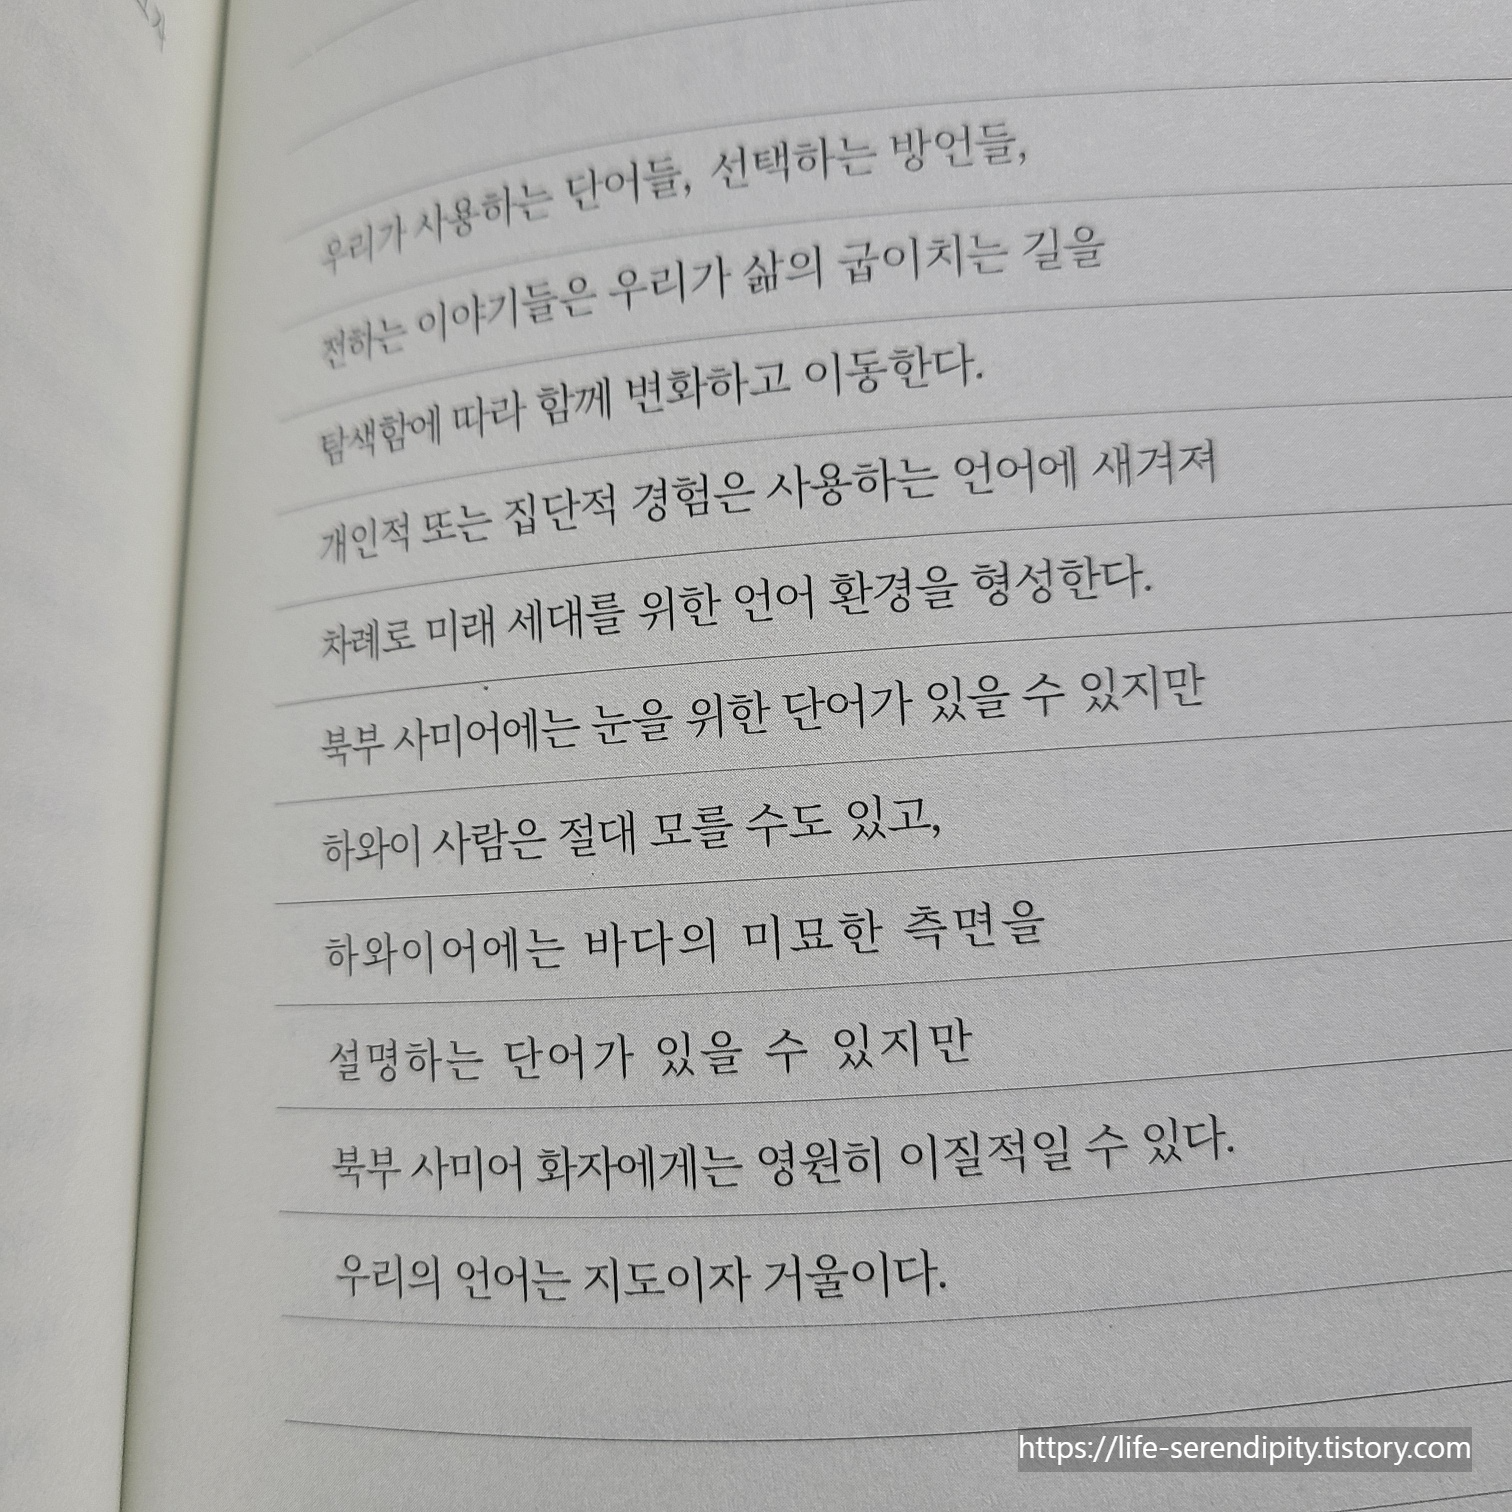 우리가 사용하는 단어들, 선택하는 방언들,
전하는 이야기들은 우리가 삶의 굽이치는 길을
탐색함에 따라 함께 변화하고 이동한다.
개인적 또는 집단적 경험은 사용하는 언어에 새겨져
차례로 미래 세대를 위한 언어 환경을 형성한다.
북부 사미어에는 눈을 위한 단어가 있을 수 있지만
하와이 사람은 절대 모를 수도 있고,
하와이어에는 바다의 미묘한 측면을
설명하는 단어가 있을 수 있지만
북부 사미어 화자에게는 영원히 이질적일 수 있다.
우리의 언어는 지도이자 거울이다.
https://life-serendipity.tistory.com